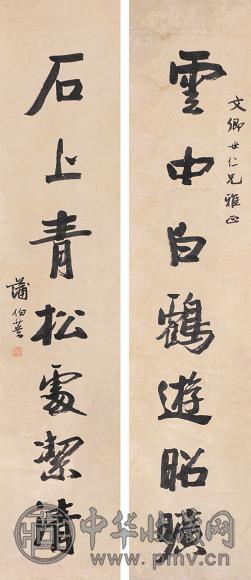 文卿世仁兄雅正
雲中白鶴遊昭曠
石上青松處絜
蒲伯英
中华收藏网
www.pmv.cn